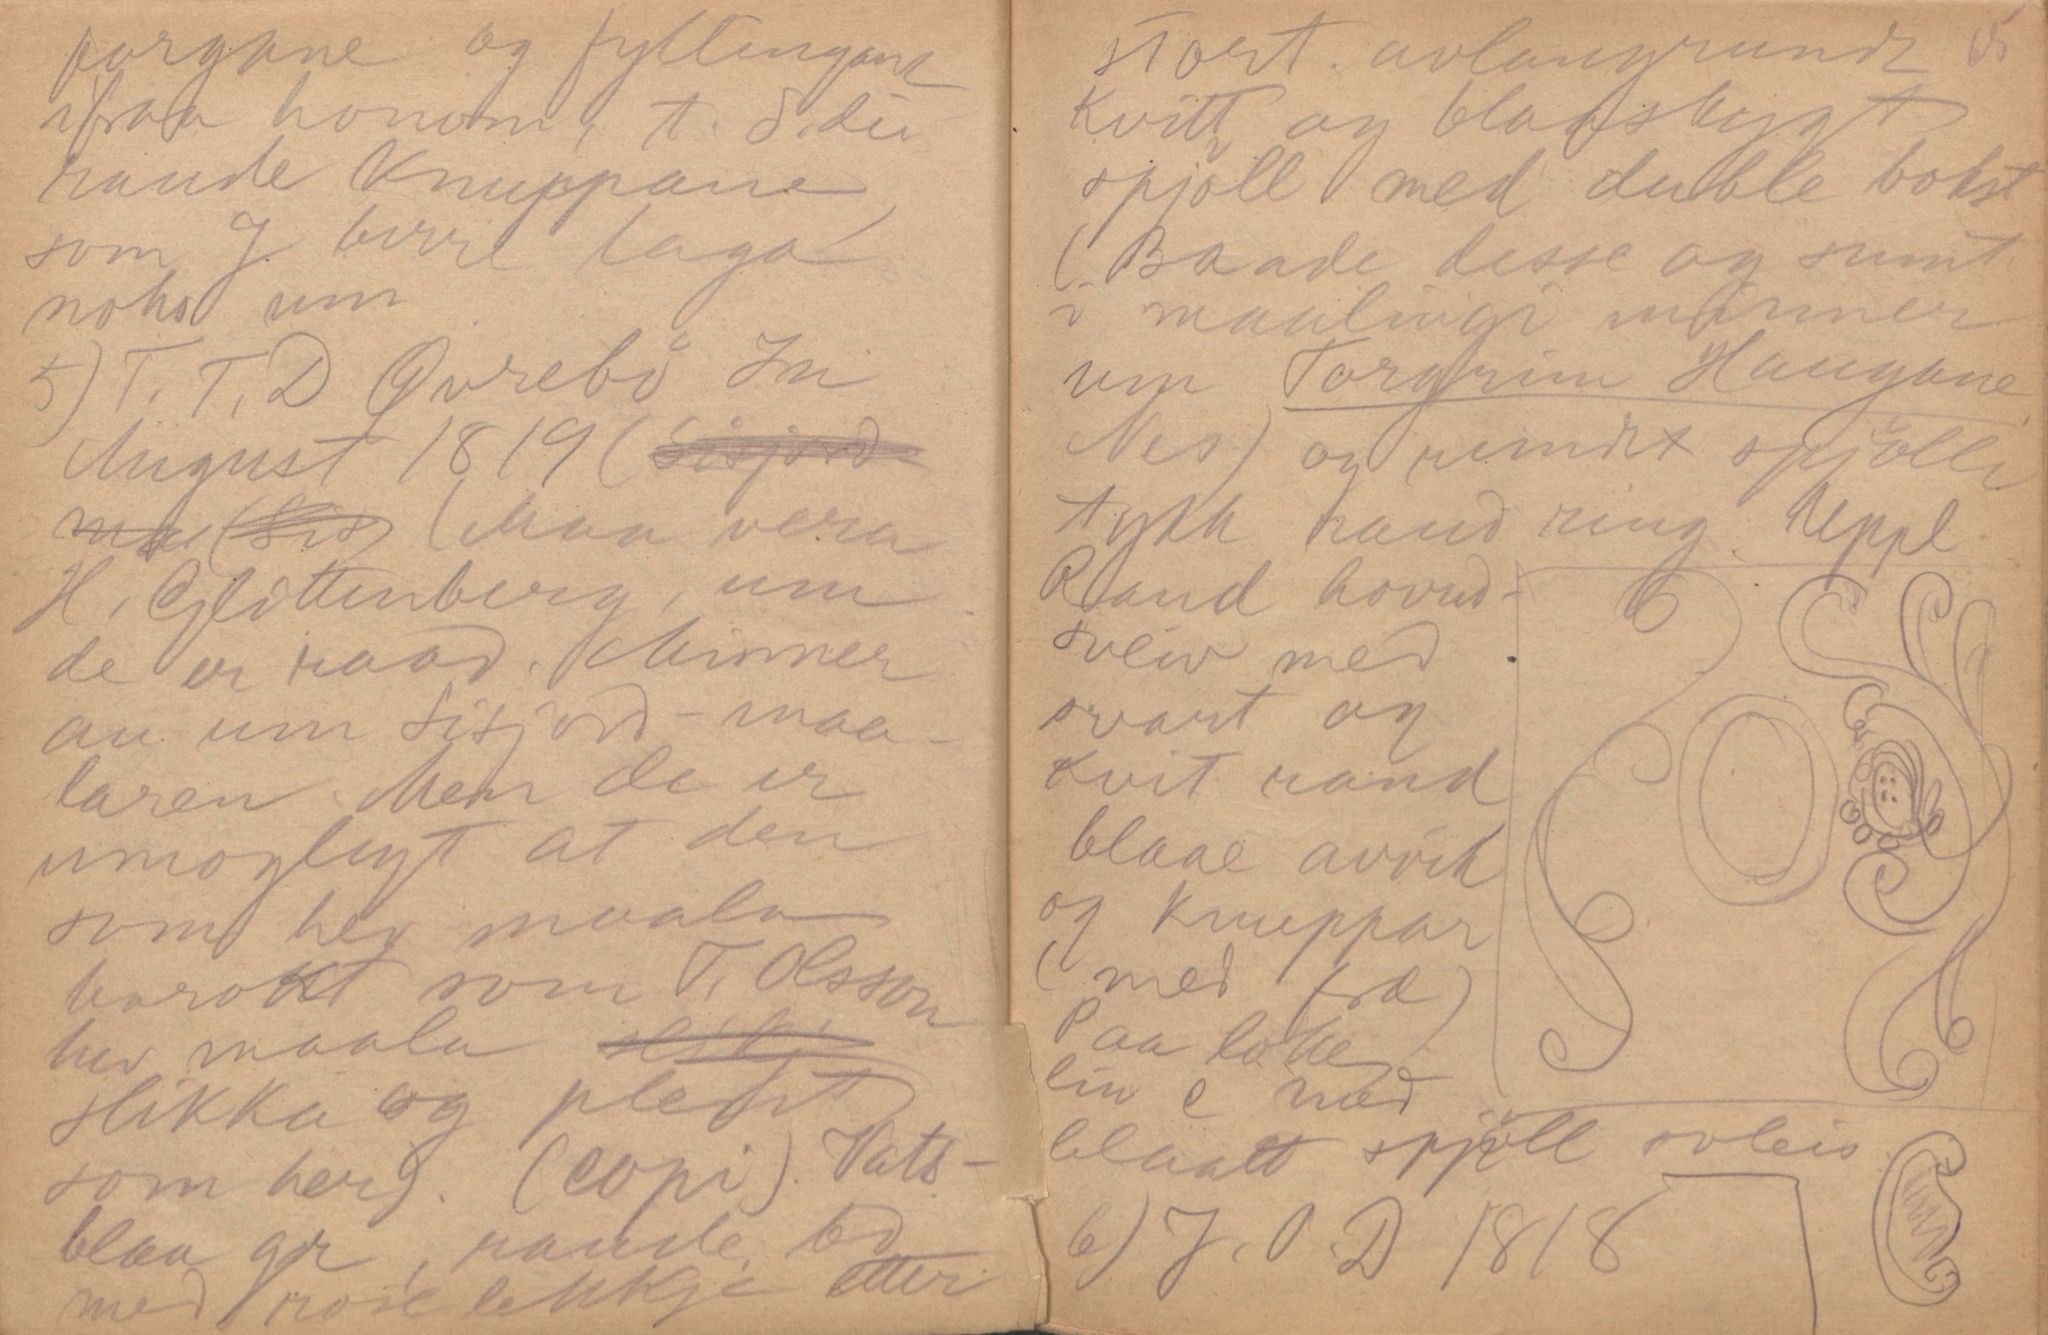 fargane og fyllingane
ifraa honom, t. d. dei
raude Knuppane
som J. berre laga
noko um
5) T. T. D Øvrebö Im
August 1819 (Sisjord
maa (Sis (Maa vera
H. Glittenberg, um
de er raad. Minner
au um Sisjord-maa-
laren. Men de er
umoglegt at den
som hev maala
barokt som T. Olsson
hev maala
slikka og plent
som her). (copi). Vats-
blaa gr, raude, bd
med rose lekkje etter
65
stort avlangrundt
Kvitt og blaaskygt
spjöll med duble bokst
(Baade desse og sumt
i maalingi minner
um Torgrim Haugane
Nes) og rundt spjölli
tykk raud ring. Keppl.
Raud hovud-
sveiv med
svart og
kvit rand
blaae avvik
og Knuppar
(med frd)
Paa loke
lin e med
blaatt spjöll soleis
6) J. O. D 1818